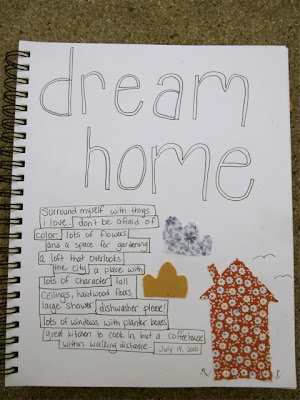 dream
home
Surround myself with things
i love. don't be afraid of
color. lots of flowers
and a space for gardening
a loft that overlooks
the city. a place with
lots of character. tall
ceilings, hardwood floors
large shower. dishwasher please!
lots of windows with planter boxes
great kitchen to cook in but a coffeehouse
within walking distance. July 14, 2010